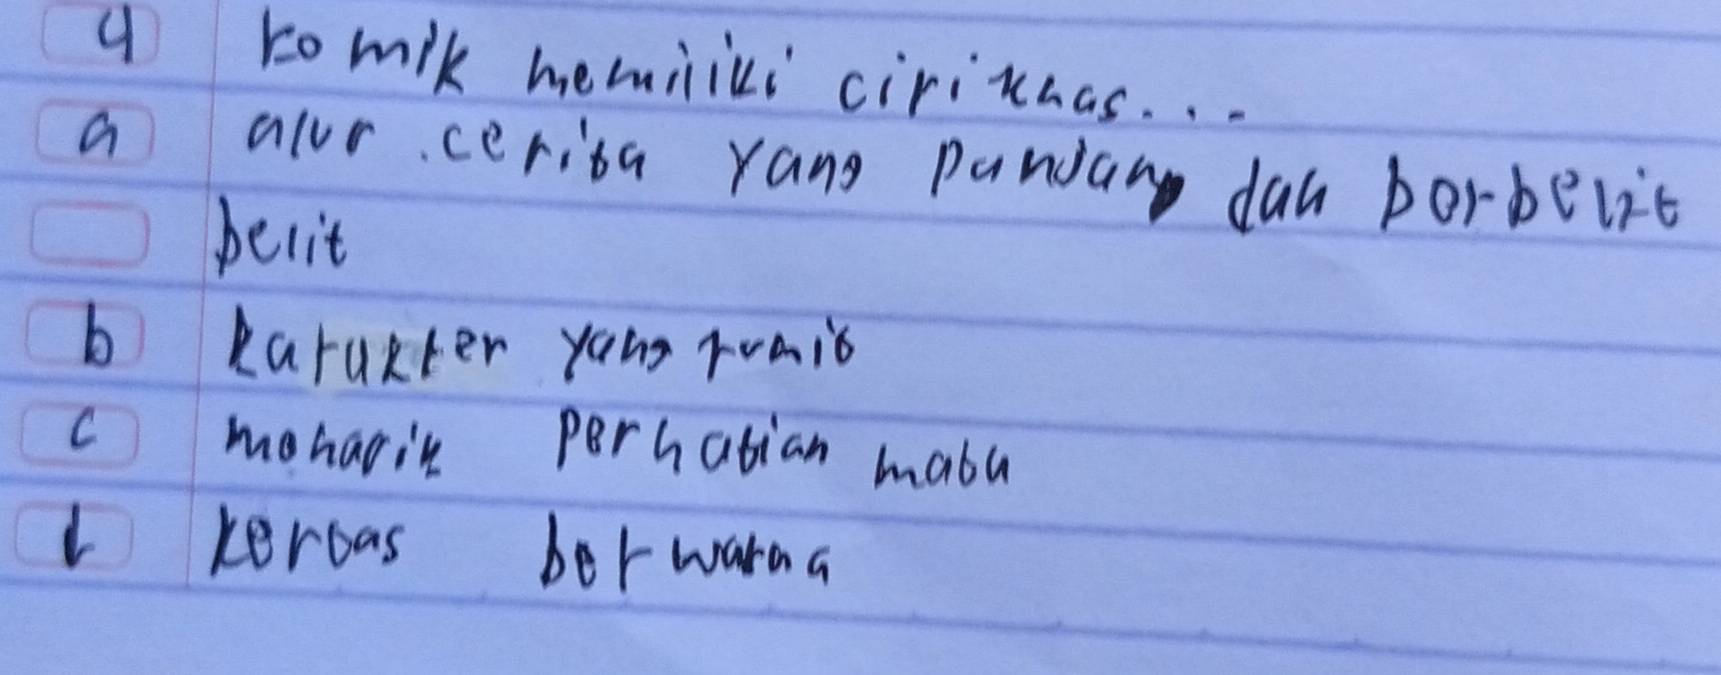 4 komik memiliki ciri khas...
a alur cerita yang panjang dan berbelit
belit
b karakter yang rumit
c menarik perhatian mata
d kertas berwarna